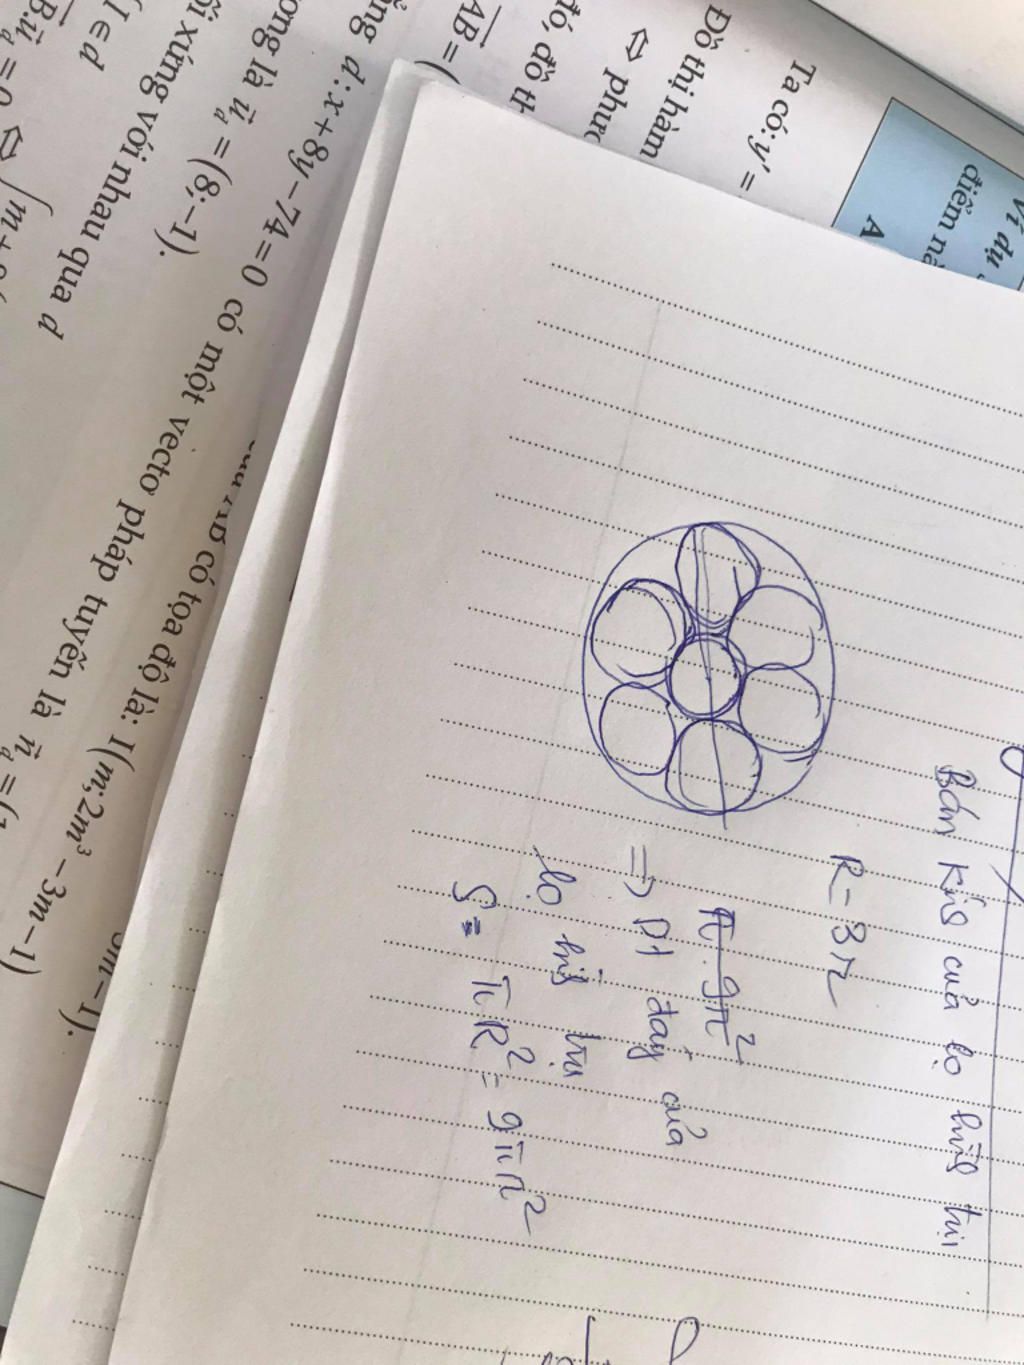 Ví dụ
điểm nà
A
Ta có: y' =
Đồ thị hàm
⇔ phươ
đó, đồ th
AB = (
d: x + 8y − 74 = 0 có một vectơ pháp tuyến là n_d = (1
ong là u_d = (8; −1).
AB có tọa độ là: I(m; 2m³ − 3m − 1)
3m − 1).
ối xứng với nhau qua d
I ∈ d
B.u_d = 0 ⇔ { m +
Bán kính của lọ hình trụ
R = 3r
π.9r²
⇒ Dt đáy của
lọ hình trụ
S = πR² = 9πr²